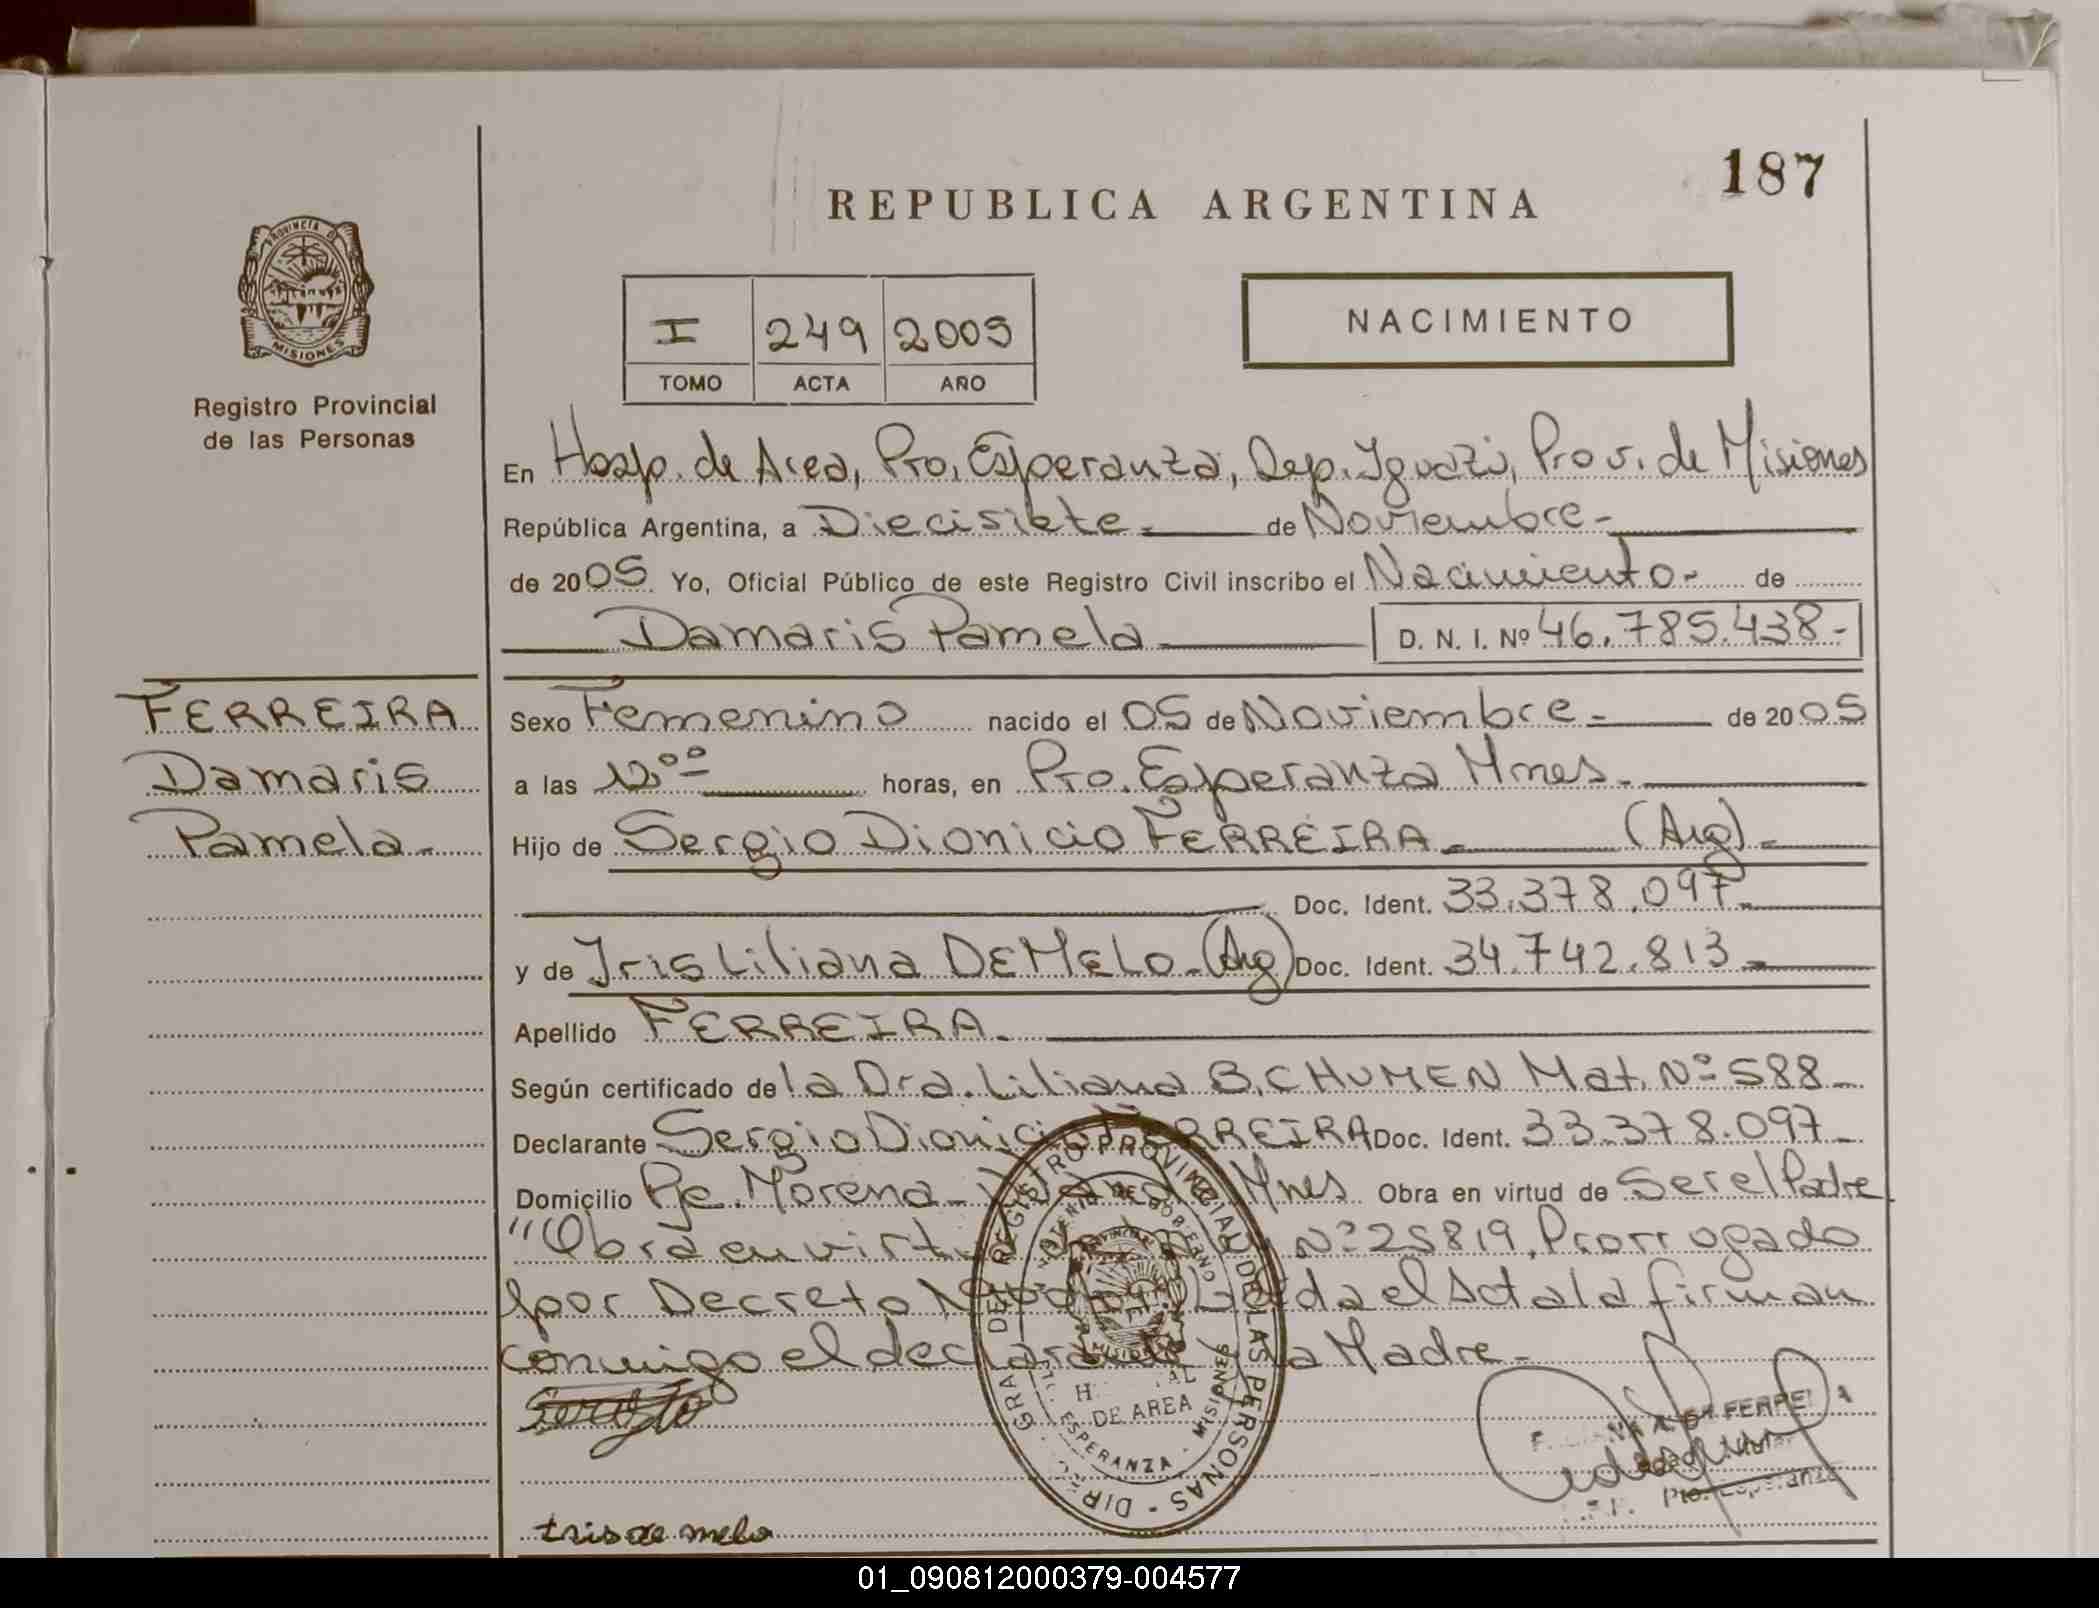 187
REPUBLICA ARGENTINA
PROVINCIA DE
MISIONES
Registro Provincial
de las Personas
I 249 2005
TOMO ACTA AÑO
NACIMIENTO
En Hosp. de Area, Pto. Esperanza, Dep. Iguazú, Prov. de Misiones
República Argentina, a Diecisiete.- de Noviembre-
de 2005 Yo, Oficial Público de este Registro Civil inscribo el Nacimiento- de
Damaris Pamela D. N. I. Nº 46.785.438-
FERREIRA
Damaris
Pamela-
Sexo Femenino nacido el 05 de Noviembre- de 2005
a las 12°° horas, en Pto. Esperanza Mnes-
Hijo de Sergio Dionicio FERREIRA- (Arg)-
Doc. Ident. 33.378.097-
y de Iris Liliana DE MELO-(Arg) Doc. Ident. 34.742.813-
Apellido FERREIRA.
Según certificado de la Dra. Liliana B. CHUMEN Mat. Nº 588-
Declarante Sergio Dionicio FERREIRA Doc. Ident. 33.378.097-
Domicilio Pje. Morena- Mnes Obra en virtud de Ser el Padre
"Obra en virtud Nº 25819, Prorrogado
por Decreto el Acta la firman
conmigo el declarante la Madre-
REGISTRO PROVINCIAL DE LAS PERSONAS
DE AREA
ESPERANZA - MISIONES
FERREIRA
Iris de melo
01_090812000379-004577